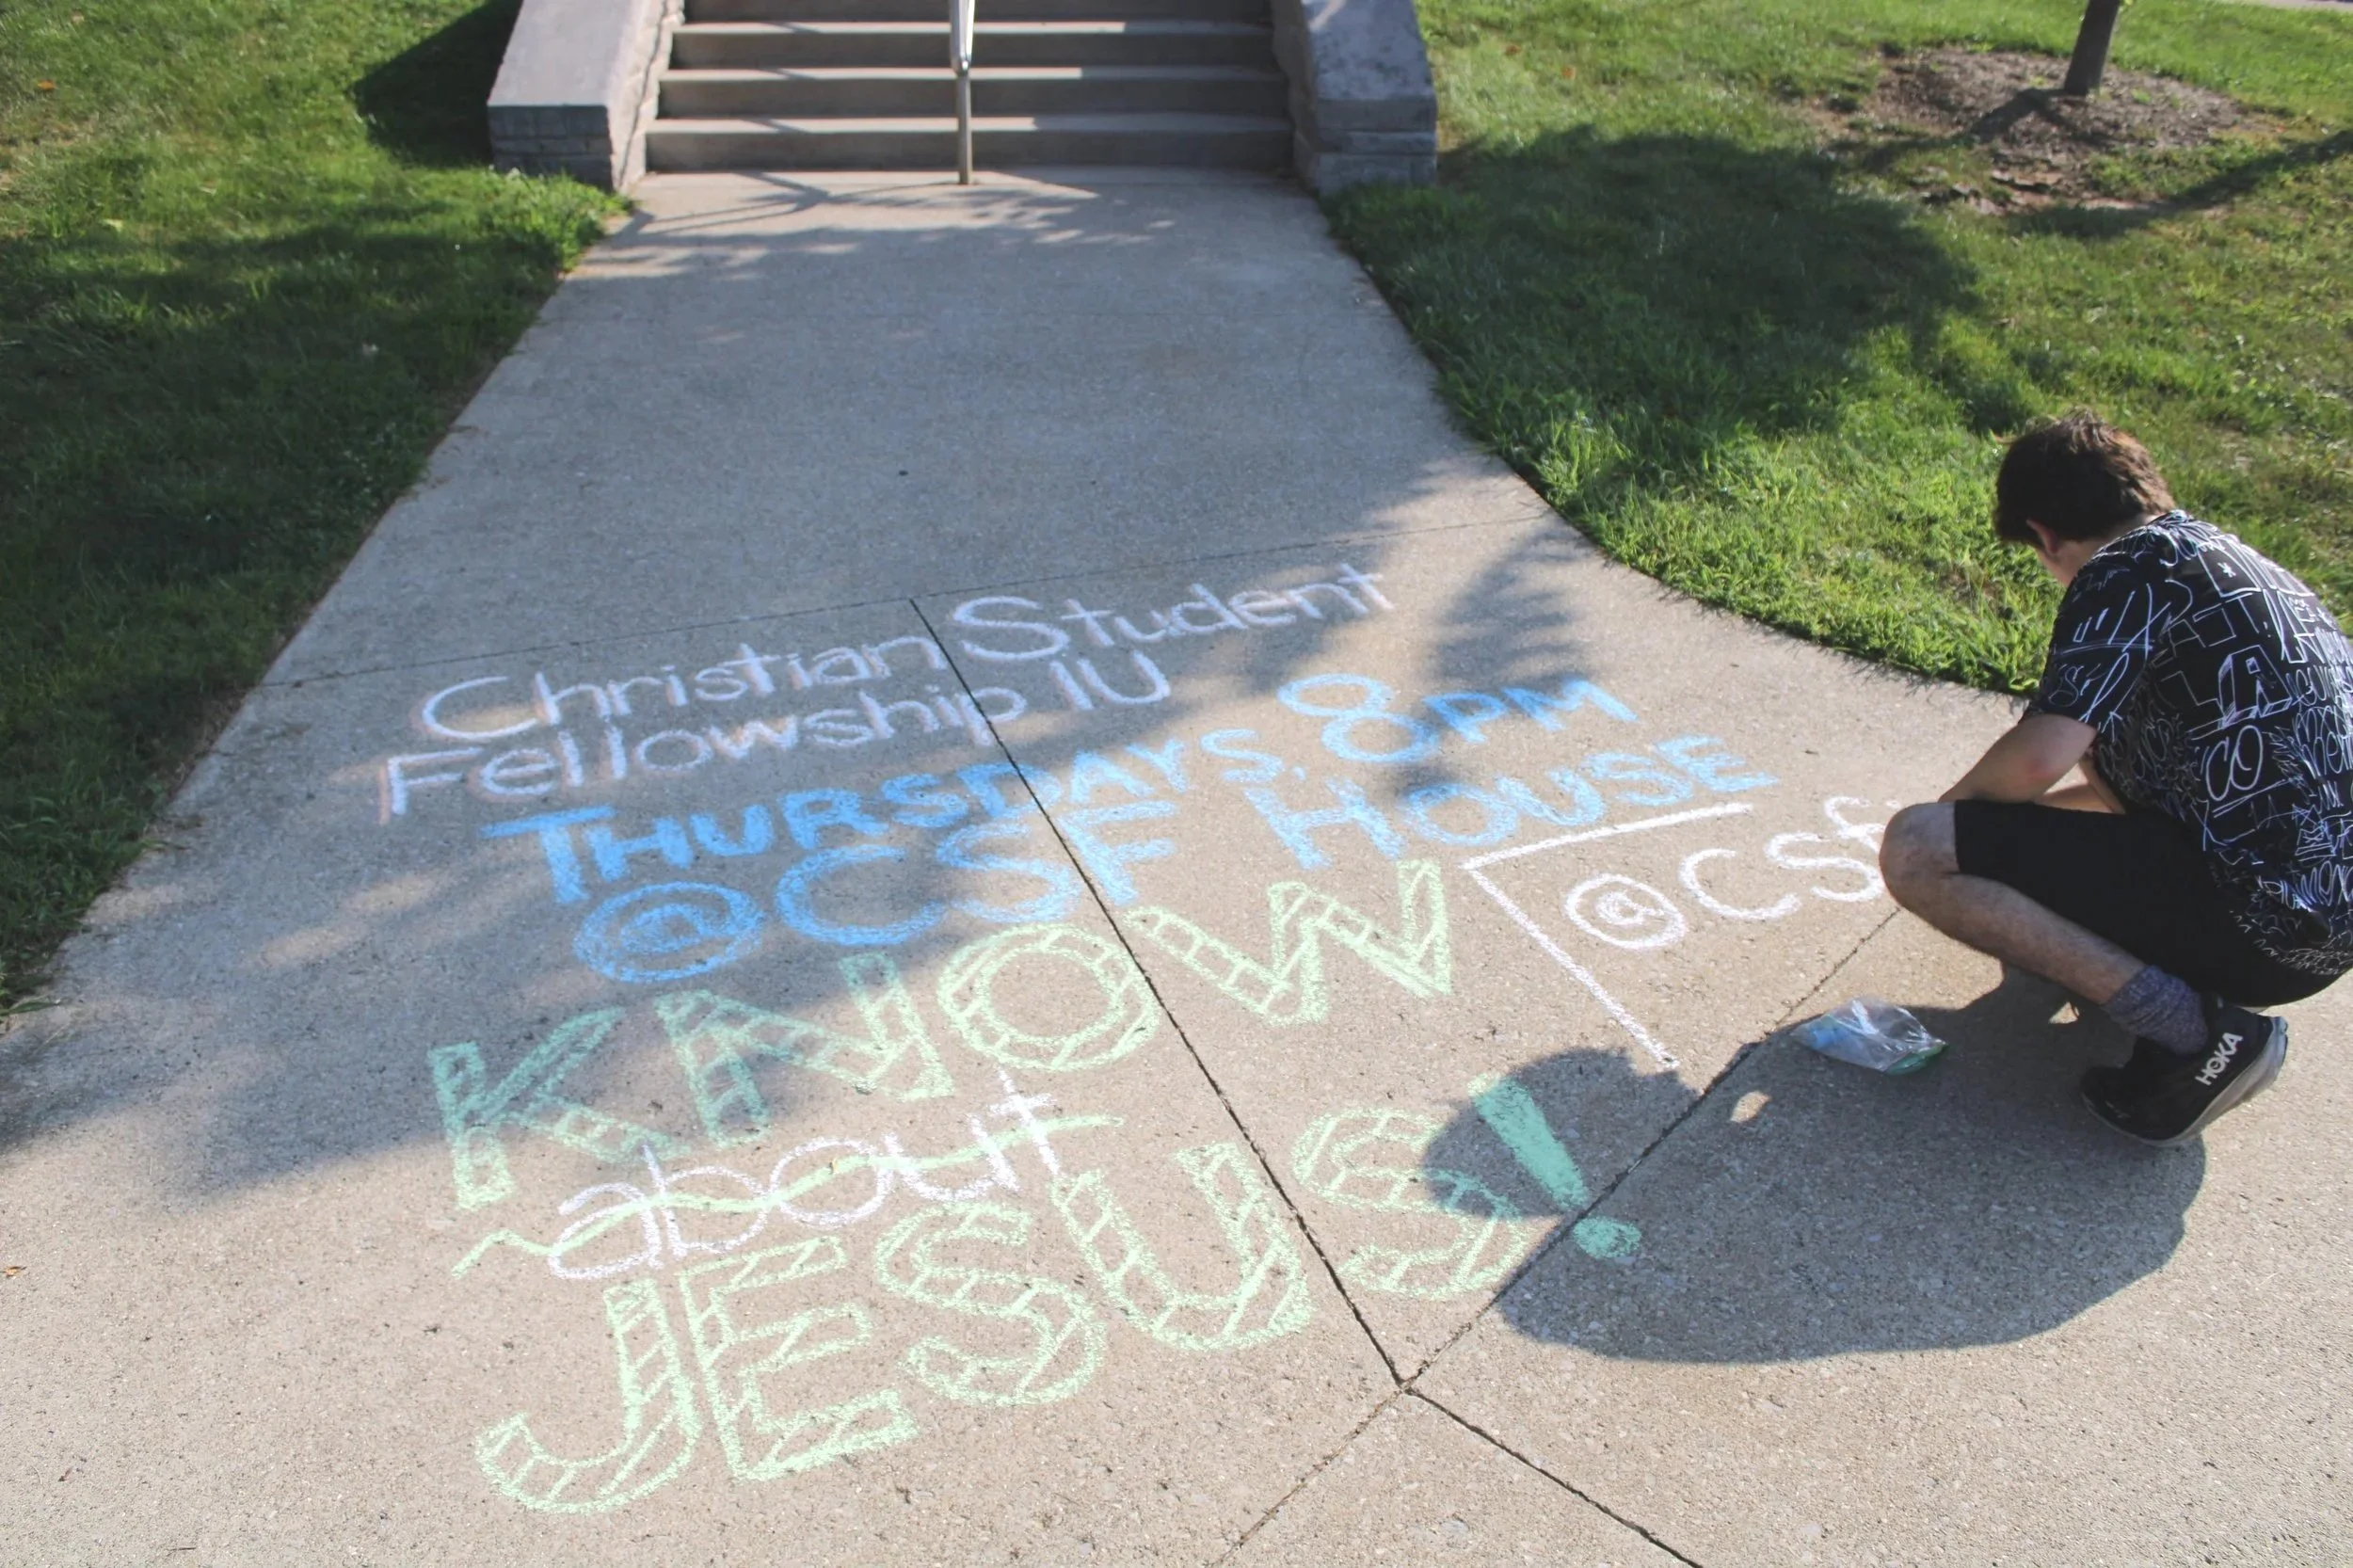 Christian Student
Fellowship IU
THURSDAYS, 8PM
@CSF HOUSE
KNOW
about
JESUS!
@csf
HOKA
CO